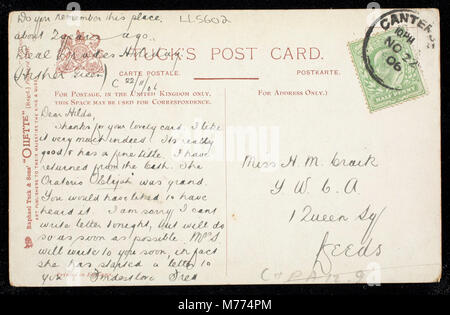 Do you remember this place
LL5602
about 2 years ago.
Ideal Holiday
POST CARD.
CARTE POSTALE.
POSTKARTE.
C 22/11/06
FOR POSTAGE, IN THE UNITED KINGDOM ONLY,
THIS SPACE MAY BE USED FOR CORRESPONDENCE.
(FOR ADDRESS ONLY.)
Raphael Tuck & Sons' "OILETTE"
ART PUBLISHERS TO THEIR MAJESTIES THE KING &
CANTER
10 PM
NO 22
06
Dear Hilda,
Thanks for your lovely card. I like
it very much indeed. Its really
good & has a fine title. I have
returned from the Cath. The
Oratorio Elijah was grand.
You would have liked to have
heard it. I am sorry I cant
write letter tonight, but will do
so as soon as possible.
will write to you soon, in fact
she has started a letter to
you. Fred
Miss H. M. Craik
Y. W. C. A.
1 Queen Sq
Leeds
alamy
Image ID: M774PM
www.alamy.com